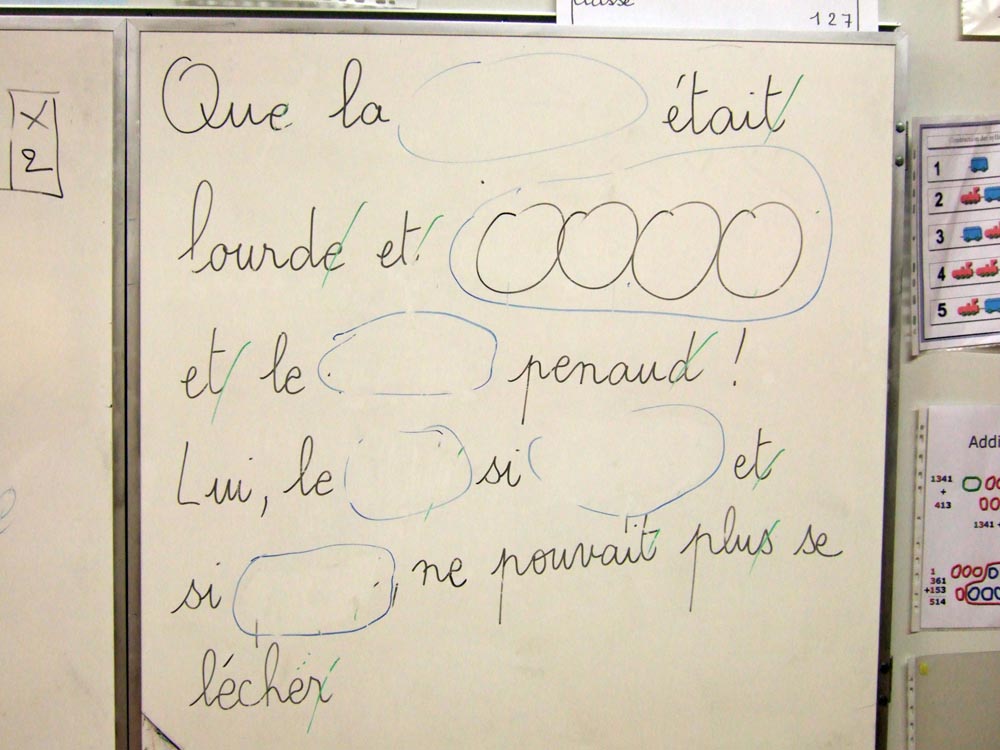 classe
127
x
2
Que la était
lourde et
et le penaud !
Lui, le si et
si , ne pouvait plus se
lécher
1
2
3
4
5
Addi
1341
+
413
1341 +
1
361
+153
514